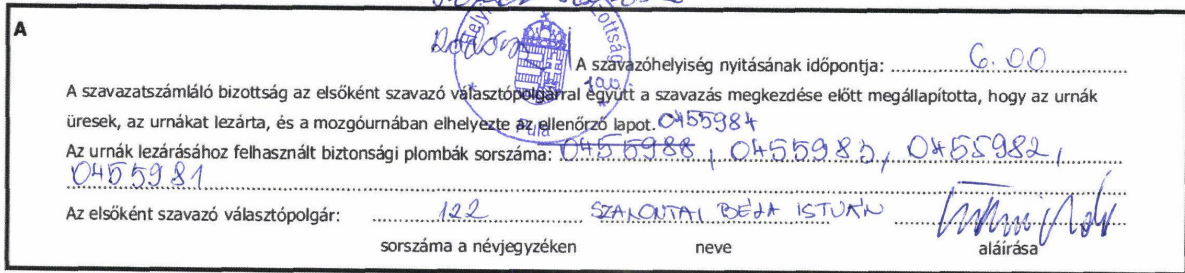 A
A szavazóhelyiség nyitásának időpontja: 6.00
A szavazatszámláló bizottság az elsőként szavazó választópolgárral együtt a szavazás megkezdése előtt megállapította, hogy az urnák
üresek, az urnákat lezárta, és a mozgóurnában elhelyezte az ellenőrző lapot. 0455984
Pula
Az urnák lezárásához felhasznált biztonsági plombák sorszáma: 0455988, 0455983, 0455982,
0455981
Az elsőként szavazó választópolgár: 122 SZALONTAI BÉLA ISTVÁN
sorszáma a névjegyzéken neve aláírása